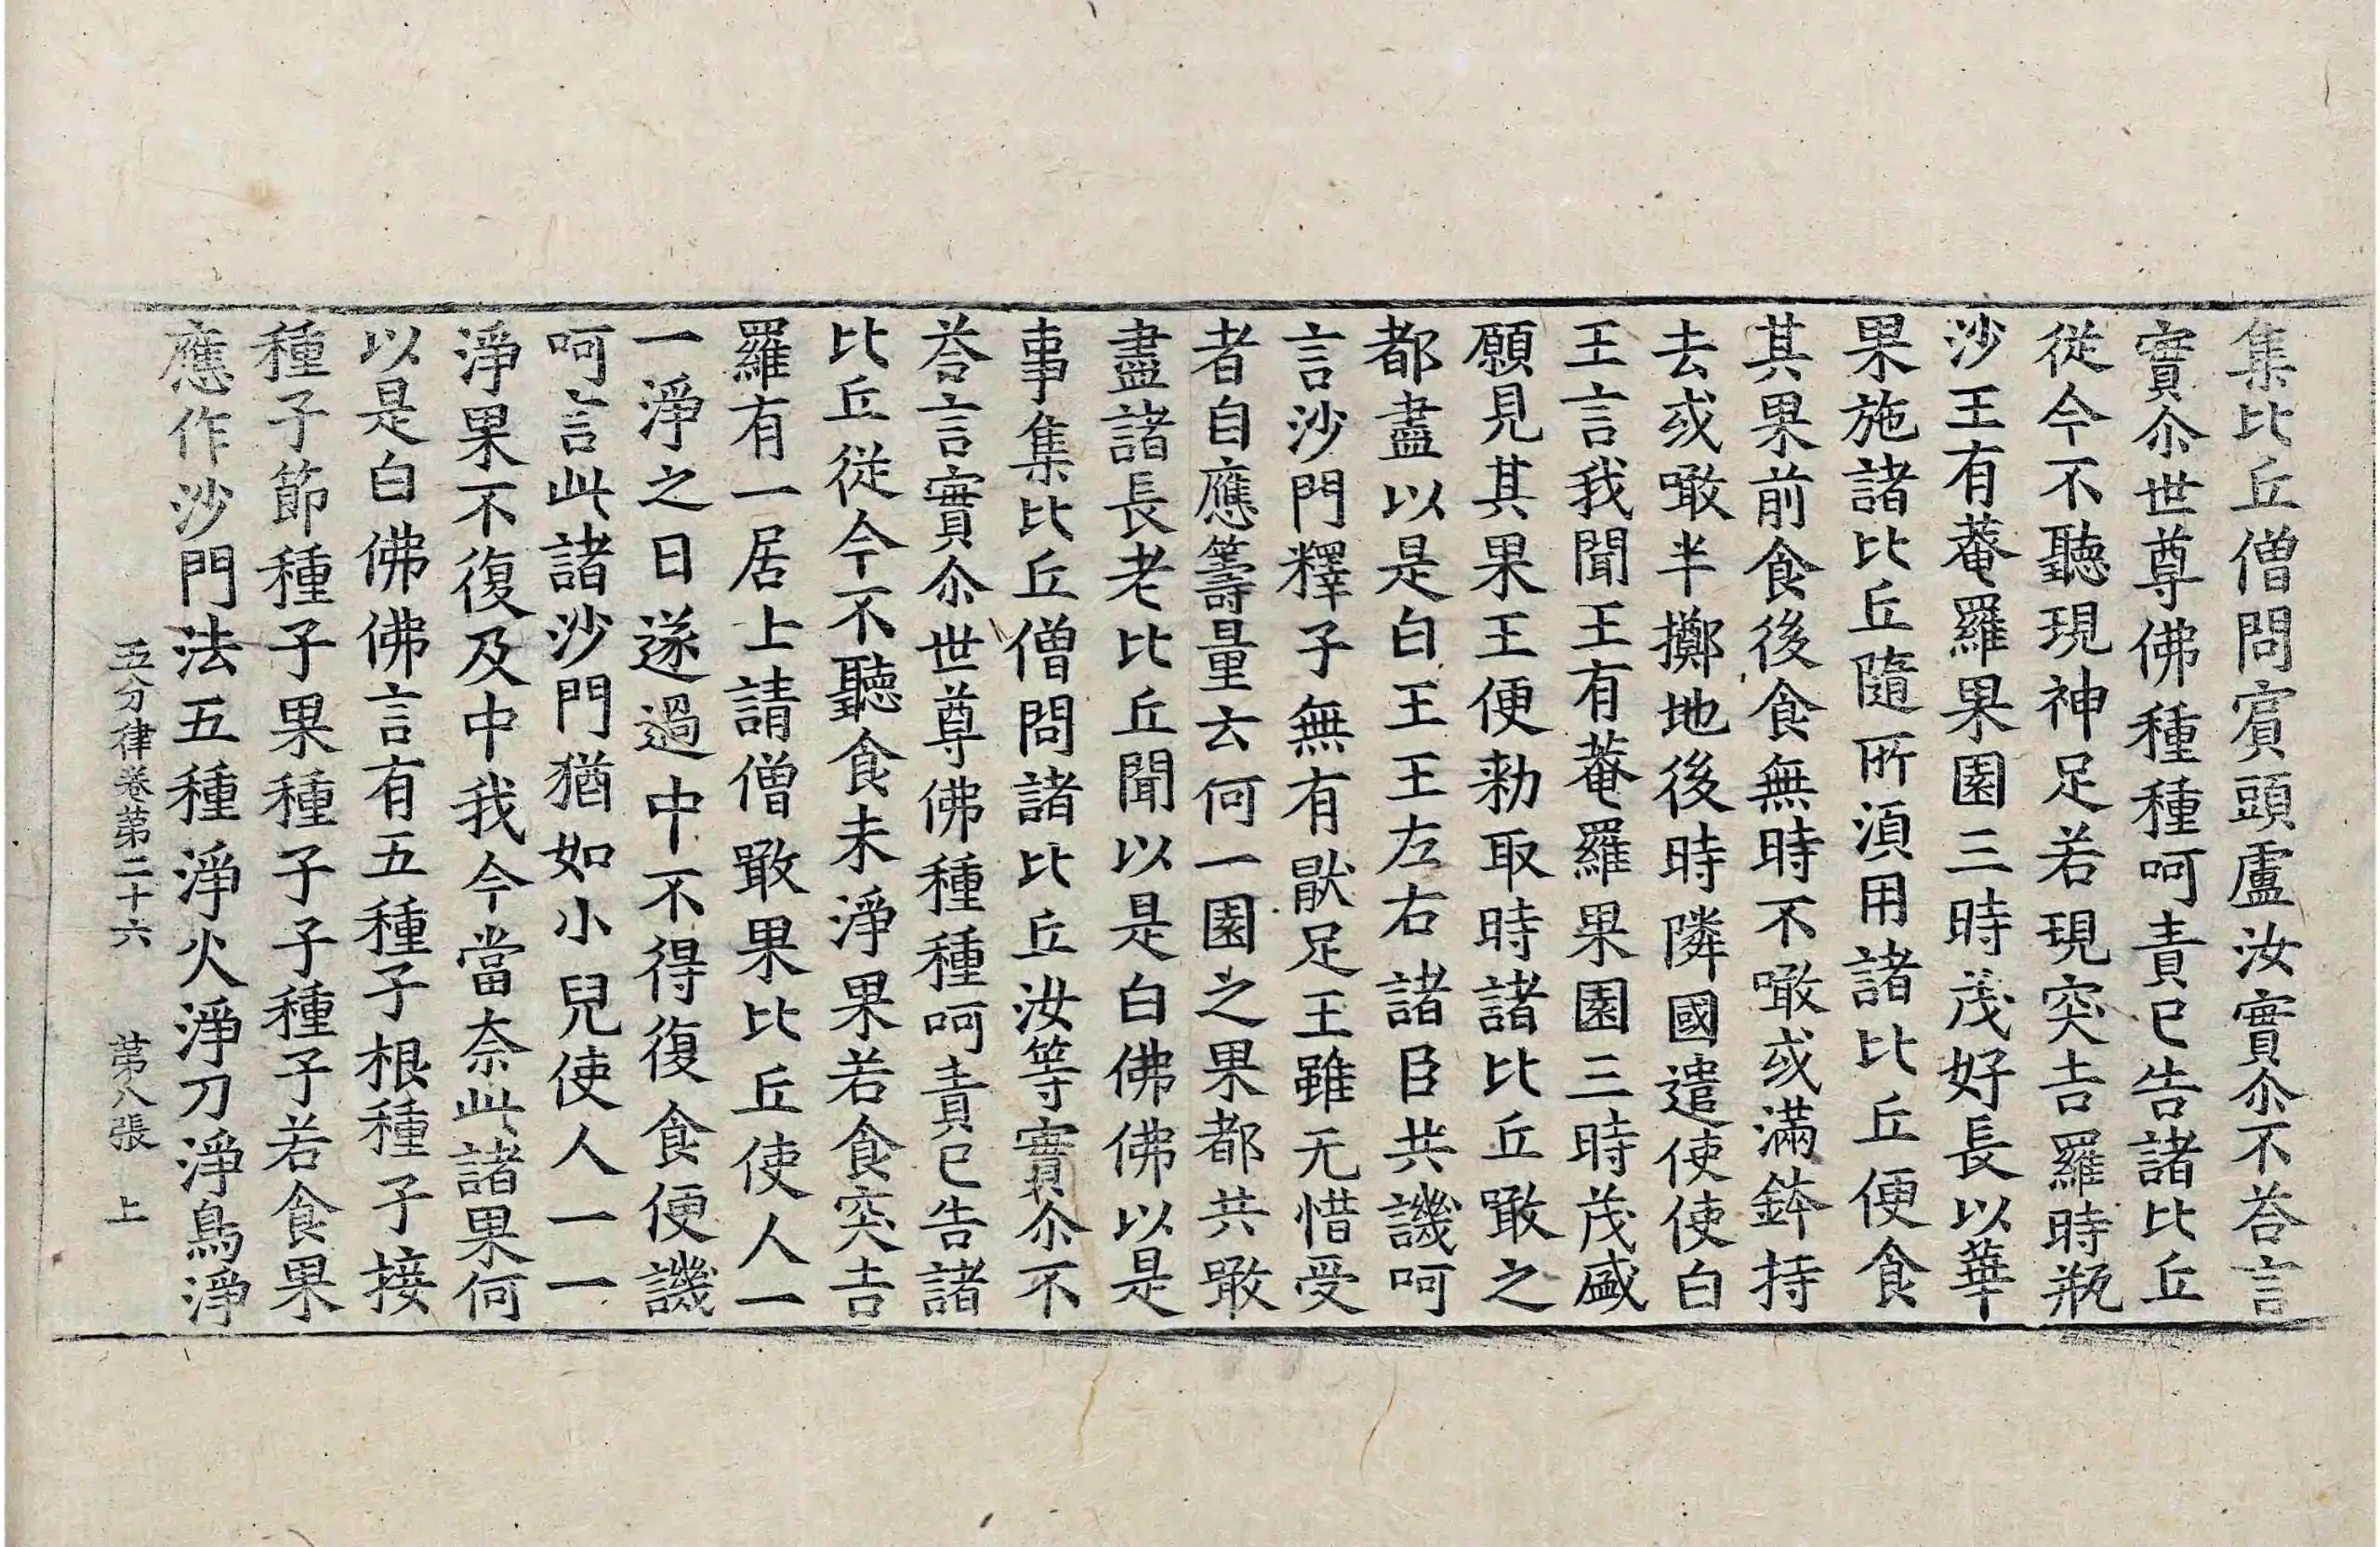 集比丘僧問賔頭盧汝實尒不荅言
實尒世尊佛種種呵責已告諸比丘
従今不聽現神足若現突吉羅時瓶
沙王有菴羅果園三時茂好長以華
果施諸比丘隨所湏用諸比丘便食
其果前食後食無時不噉或滿鉢持
去或噉半擲地後時隣國遣使使白
王言我聞王有菴羅果園三時茂盛
願見其果王便勑取時諸比丘噉之
都盡以是白王王左右諸臣共譏呵
言沙門釋子無有猒足王雖无惜受
者自應籌量云何一園之果都共噉
盡諸長老比丘聞以是白佛佛以是
事集比丘僧問諸比丘汝等實尒不
荅言實尒世尊佛種種呵責已告諸
比丘従今不聽食未淨果若食突吉
羅有一居士請僧噉果比丘使人一
一淨之日遂過中不得復食便譏
呵言此諸沙門猶如小兒使人一一
淨果不復及中我今當奈此諸果何
以是白佛佛言有五種子根種子接
種子節種子果種子子種子若食果
應作沙門法五種淨火淨刀淨鳥淨
五分律卷第二十六 第八張 上